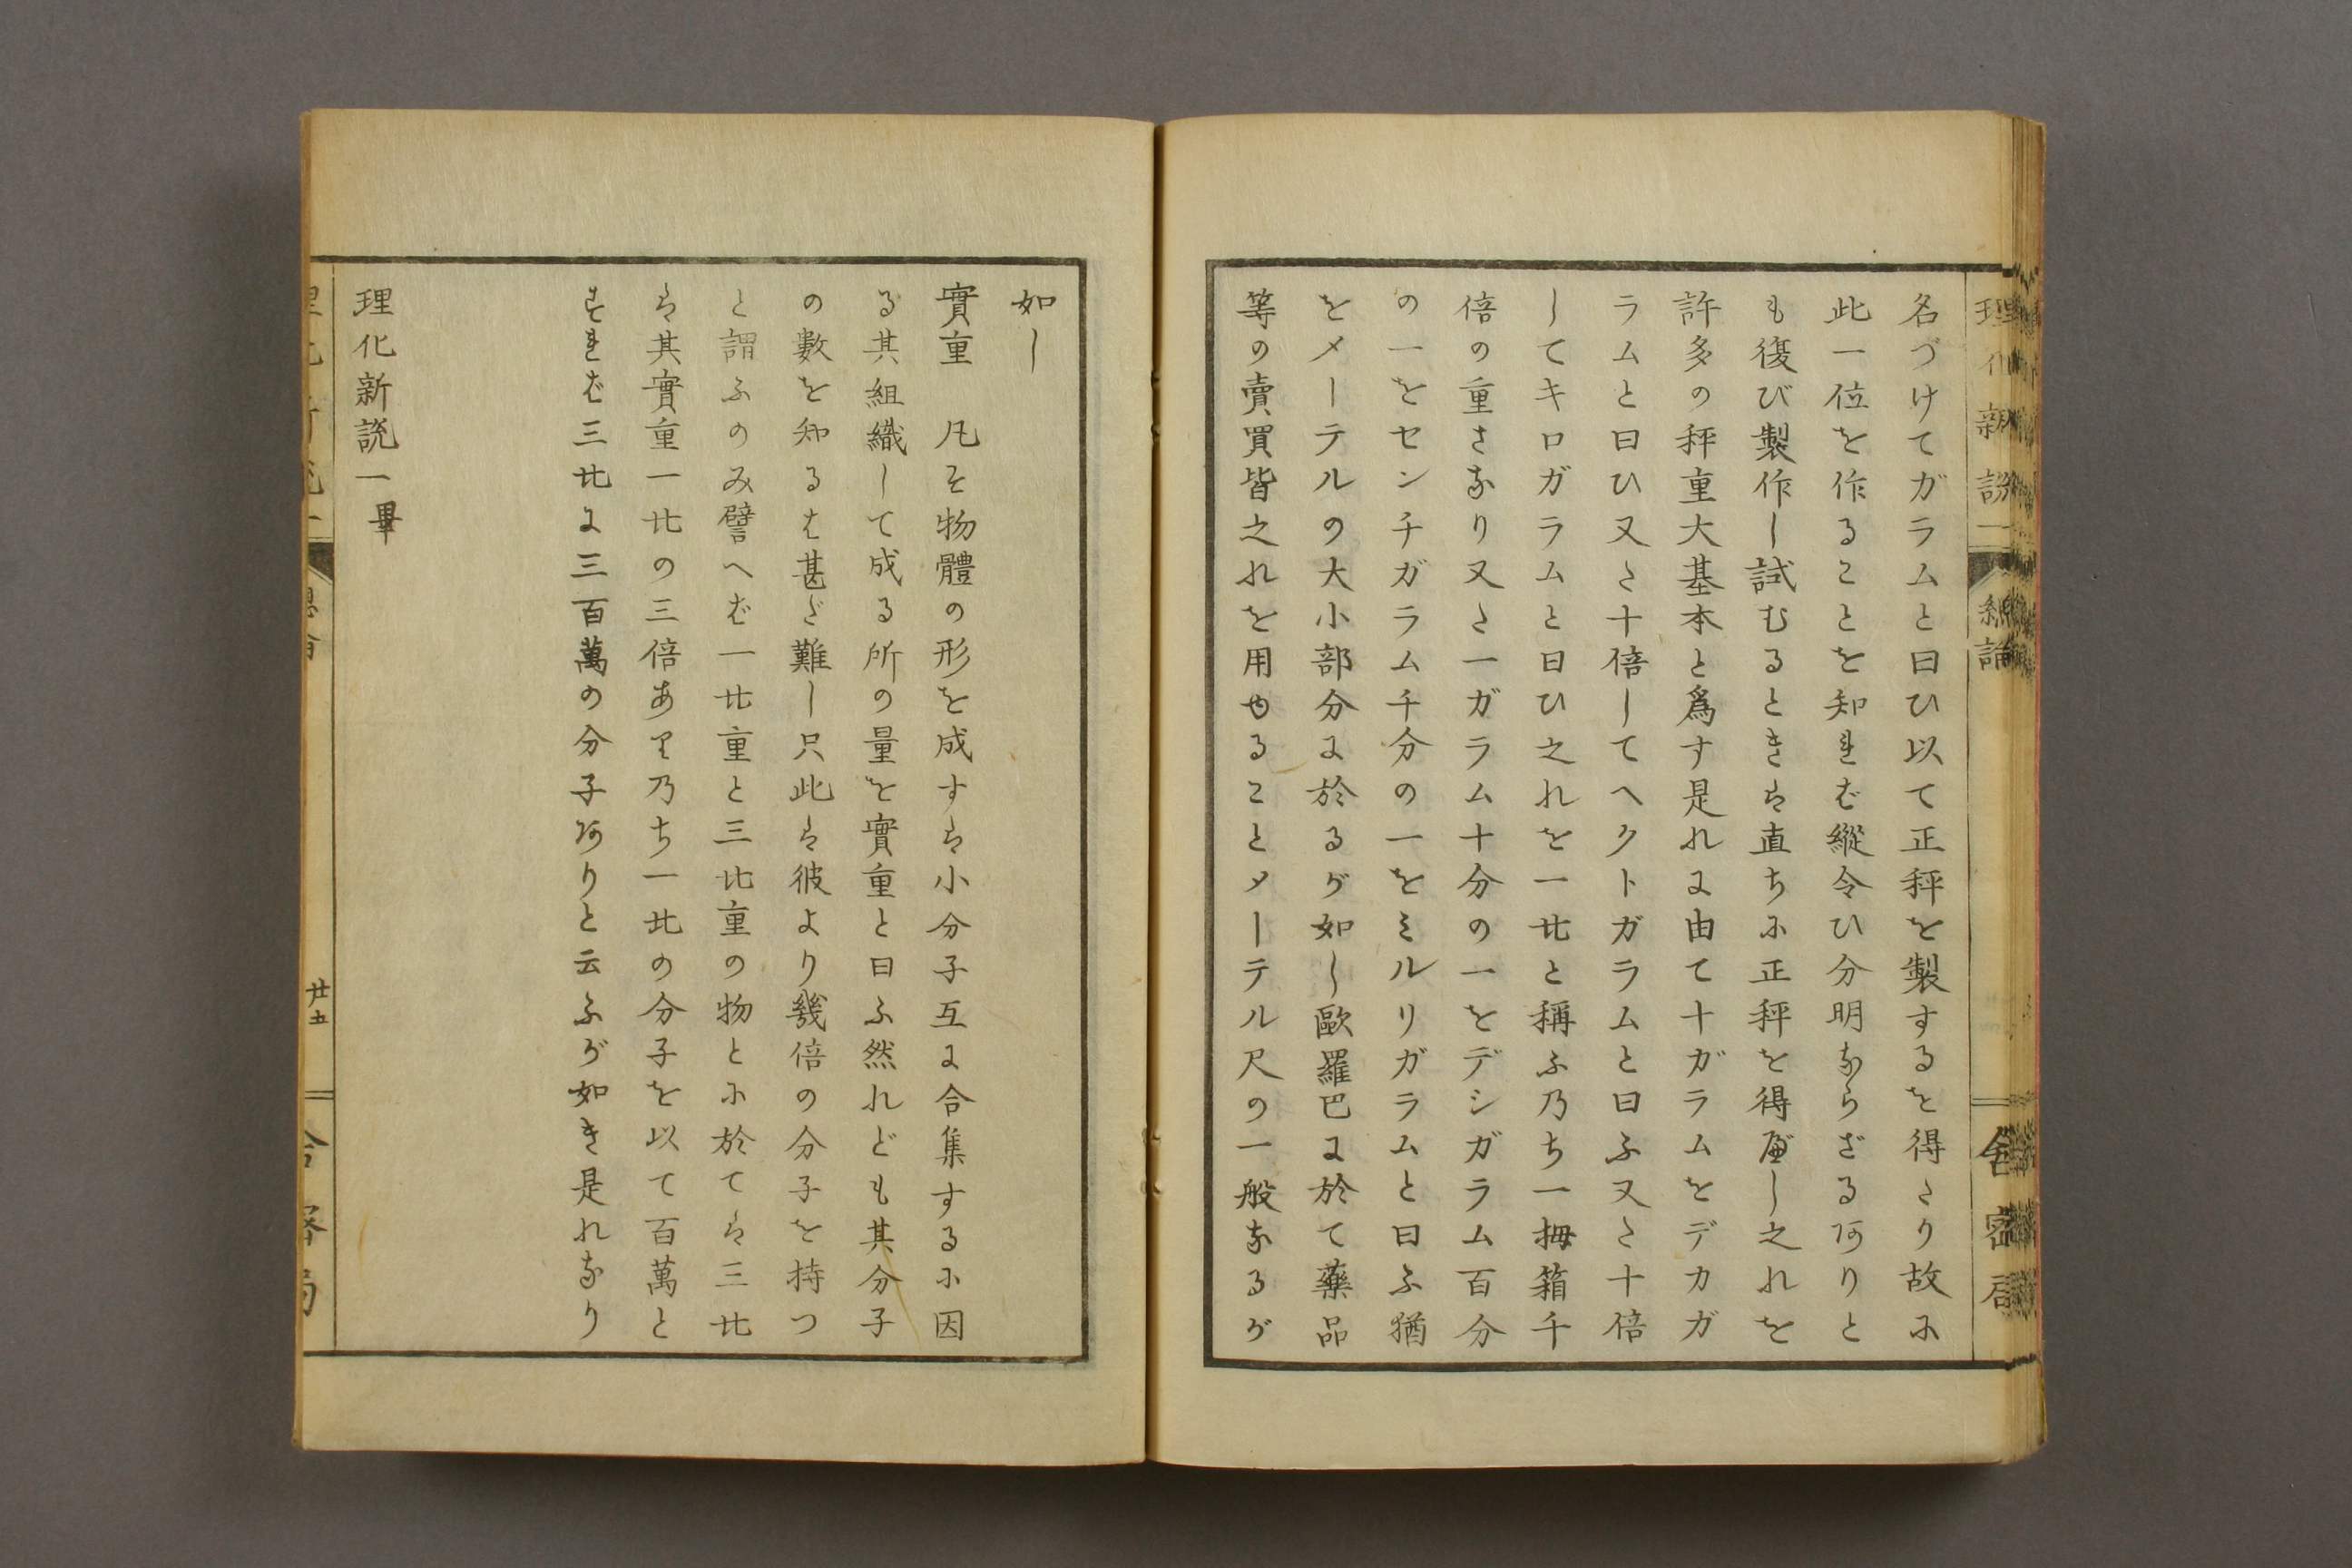 理化新説一 總論 舎密局
名づけてガラムと曰ひ以て正秤を製するを得たり故に
此一位を作ることを知れば縦令ひ分明ならざる所りと
も復び製作し試むるときは直ちに正秤を得べし之れを
許多の秤重大基本と爲す是れに由て十ガラムをデカガ
ラムと曰ひ又た十倍してヘクトガラムと曰ふ又た十倍
してキロガラムと曰ひ之れを一㐀と稱ふ乃ち一拇箱千
倍の重さなり又た一ガラム十分の一をデシガラム百分
の一をセンチガラム千分の一をミルリガラムと曰ふ猶
をメーテルの大小部分に於るが如し歐羅巴に於て藥品
等の賣買皆之れを用ゆることメーテル尺の一般なるが
如し
實重 凡そ物體の形を成すは小分子互に合集するに因
る其組織して成る所の量を實重と曰ふ然れども其分子
の數を知るは甚だ難し只此は彼より幾倍の分子を持つ
と謂ふのみ譬へば一㐀重と三㐀重の物とに於ては三㐀
は其實重一㐀の三倍あり乃ち一㐀の分子を以て百萬と
すれば三㐀に三百萬の分子阿りと云ふが如き是れなり
理化新説一畢
廿五